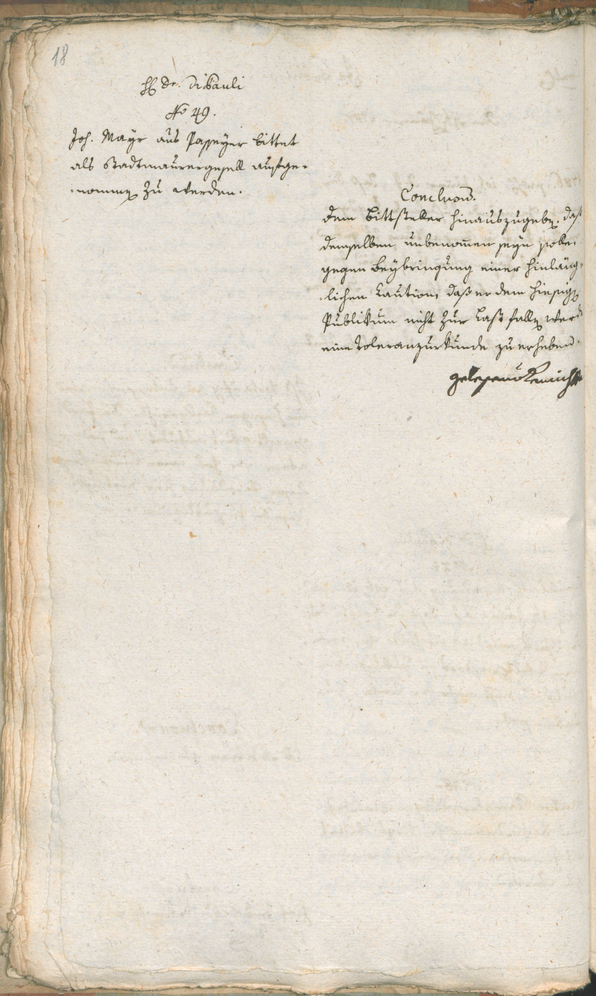 18
H. Dr. Di Pauli
No 49.
Joh. Mayr aus Passeyer bittet
als Stadtmaurergesell aufge-
nommen zu werden.
Conclusum.
Dem Bittsteller hinauszugeben, daß
demselben unbenommen seyn solle,
gegen Beybringung einer hinläng-
lichen Caution, daß er dem hiesigen
Publikum nicht zur Last fallen werde
eine Toleranzurkunde zu erheben.